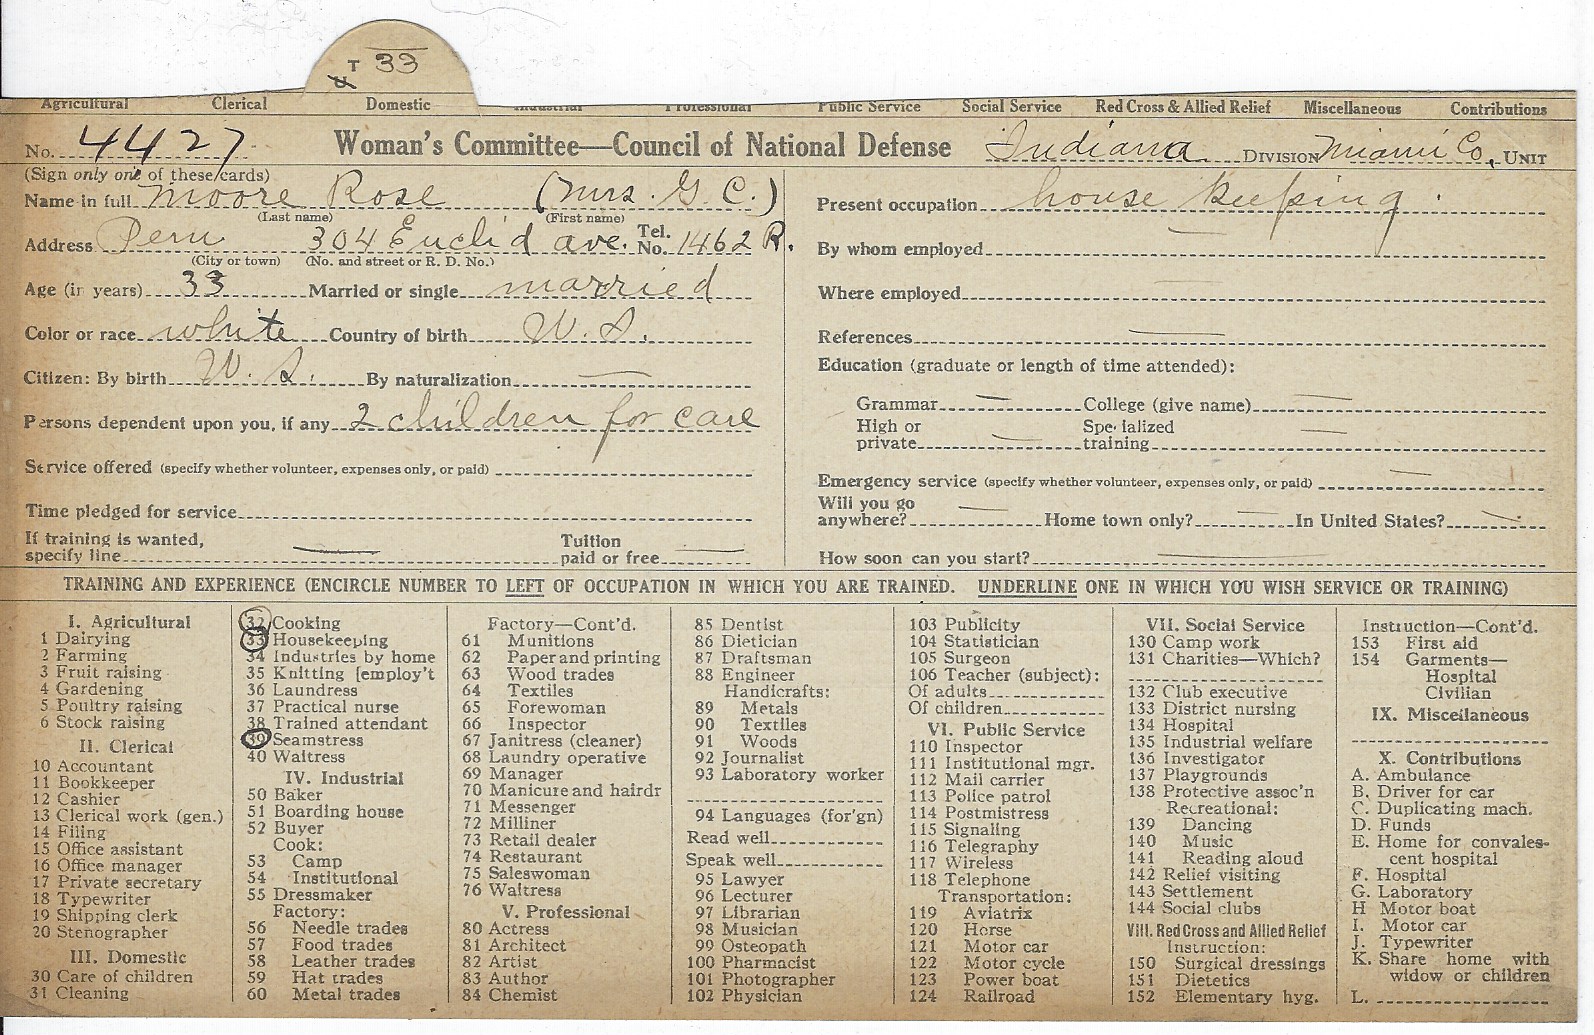 T 33
Agricultural Clerical Domestic Industrial Professional Public Service Social Service Red Cross & Allied Relief Miscellaneous Contributions
No. 4427 Woman's Committee—Council of National Defense Indiana DIVISION Miami Co. UNIT
(Sign only one of these cards)
Name in full Moore Rose (Mrs. G. C.)
(Last name) (First name)
Address Peru 304 Euclid ave. Tel. No. 1462 R.
(City or town) (No. and street or R. D. No.)
Age (in years) 33 Married or single married
Color or race white Country of birth U. S.
Citizen: By birth U. S. By naturalization —
Persons dependent upon you, if any 2 children for care
Service offered (specify whether volunteer, expenses only, or paid)
Time pledged for service
If training is wanted, specify line — Tuition paid or free —
Present occupation house keeping
By whom employed —
Where employed —
References —
Education (graduate or length of time attended):
Grammar — College (give name) —
High or private — Specialized training —
Emergency service (specify whether volunteer, expenses only, or paid) —
Will you go anywhere? — Home town only? — In United States? —
How soon can you start? —
TRAINING AND EXPERIENCE (ENCIRCLE NUMBER TO LEFT OF OCCUPATION IN WHICH YOU ARE TRAINED. UNDERLINE ONE IN WHICH YOU WISH SERVICE OR TRAINING)
I. Agricultural
1 Dairying
2 Farming
3 Fruit raising
4 Gardening
5 Poultry raising
6 Stock raising
II. Clerical
10 Accountant
11 Bookkeeper
12 Cashier
13 Clerical work (gen.)
14 Filing
15 Office assistant
16 Office manager
17 Private secretary
18 Typewriter
19 Shipping clerk
20 Stenographer
III. Domestic
30 Care of children
31 Cleaning
32 Cooking
33 Housekeeping
34 Industries by home
35 Knitting [employ't
36 Laundress
37 Practical nurse
38 Trained attendant
39 Seamstress
40 Waitress
IV. Industrial
50 Baker
51 Boarding house
52 Buyer
Cook:
53 Camp
54 Institutional
55 Dressmaker
Factory:
56 Needle trades
57 Food trades
58 Leather trades
59 Hat trades
60 Metal trades
Factory—Cont'd.
61 Munitions
62 Paper and printing
63 Wood trades
64 Textiles
65 Forewoman
66 Inspector
67 Janitress (cleaner)
68 Laundry operative
69 Manager
70 Manicure and hairdr
71 Messenger
72 Milliner
73 Retail dealer
74 Restaurant
75 Saleswoman
76 Waitress
V. Professional
80 Actress
81 Architect
82 Artist
83 Author
84 Chemist
85 Dentist
86 Dietician
87 Draftsman
88 Engineer
Handicrafts:
89 Metals
90 Textiles
91 Woods
92 Journalist
93 Laboratory worker
94 Languages (for'gn)
Read well
Speak well
95 Lawyer
96 Lecturer
97 Librarian
98 Musician
99 Osteopath
100 Pharmacist
101 Photographer
102 Physician
103 Publicity
104 Statistician
105 Surgeon
106 Teacher (subject):
Of adults
Of children
VI. Public Service
110 Inspector
111 Institutional mgr.
112 Mail carrier
113 Police patrol
114 Postmistress
115 Signaling
116 Telegraphy
117 Wireless
118 Telephone
Transportation:
119 Aviatrix
120 Horse
121 Motor car
122 Motor cycle
123 Power boat
124 Railroad
VII. Social Service
130 Camp work
131 Charities—Which?
132 Club executive
133 District nursing
134 Hospital
135 Industrial welfare
136 Investigator
137 Playgrounds
138 Protective assoc'n
Recreational:
139 Dancing
140 Music
141 Reading aloud
142 Relief visiting
143 Settlement
144 Social clubs
VIII. Red Cross and Allied Relief
Instruction:
150 Surgical dressings
151 Dietetics
152 Elementary hyg.
Instruction—Cont'd.
153 First aid
154 Garments—
Hospital
Civilian
IX. Miscellaneous
X. Contributions
A. Ambulance
B. Driver for car
C. Duplicating mach.
D. Funds
E. Home for convales-
cent hospital
F. Hospital
G. Laboratory
H Motor boat
I. Motor car
J. Typewriter
K. Share home with
widow or children
L.